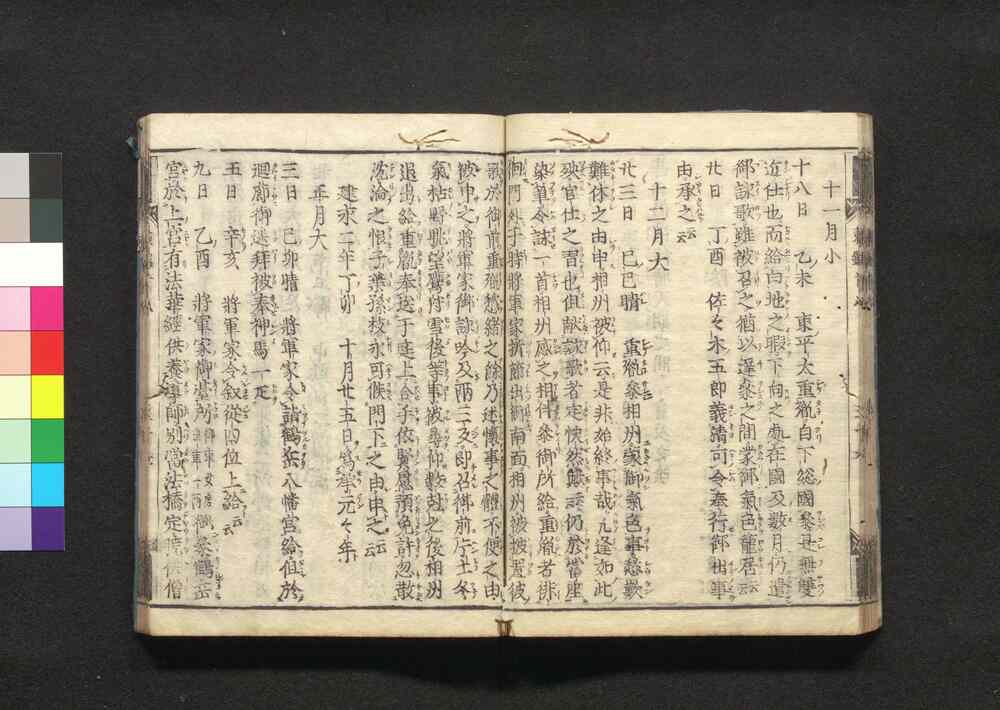 十一月小
十八日 乙未 東平太重胤自下総國參是無雙
近仕也而給白地之暇下向之處在國及數月仍遣
御詠歌雖被召之猶以遲參之間蒙御氣色籠居云云
廿日 丁酉 佐々木五郎義清可令奉行御出事
由承之云云
十二月大
廿三日 己巳晴 重胤參相州家御氣色事愁歎
難休之由申相州被仰云是非始終事哉凡逢如此
殃官仕之習也但献詠歌者定快然歟云云仍於當座
染筆令詠一首相州感之相伴參御所給重胤者徘
徊門外于時將軍家折節出御南面相州被披置彼
歌於御前重胤愁緒之餘乃述懷事之體不便之由
被申之將軍家御詠吟及兩三反即召御前片土冬
氣枯野眺望鷹狩雪後等事被尋仰數剋之後相州
退出給重胤奉送于庭上合手依賢慮預免許忽散
沈淪之恨子葉孫枝永可候門下之由申之云云
建永二年丁卯 十月廿五日爲承元々年
正月大
三日 己卯晴 將軍家令詣鶴岳八幡宮給但於
廻廊御遥拜被奉神馬一疋
五日 辛亥 將軍家令叙從四位上給云云
九日 乙酉 將軍家御臺所 參鶴岳
宮於上宮有法華經供養導師別當法橋定曉供僧